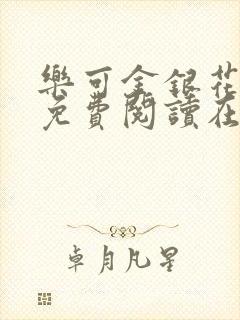 樂可金銀花
免費閱讀在
卓月凡星